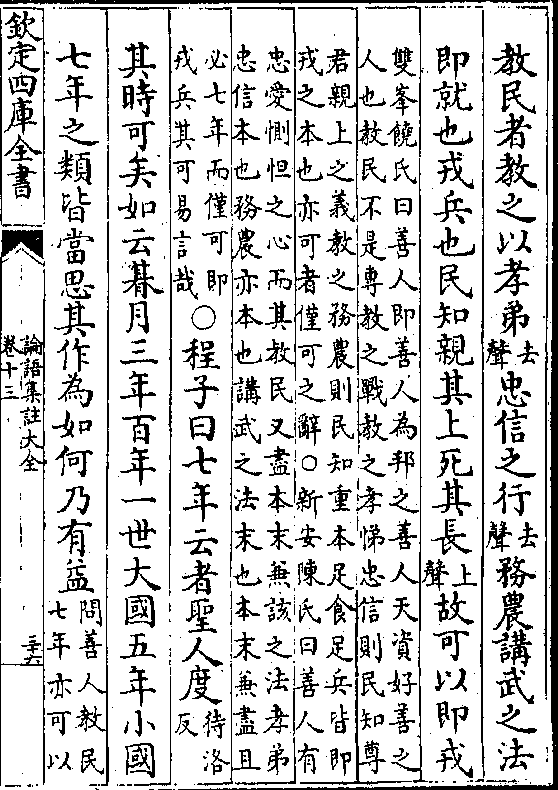 教民者教之以孝弟去聲忠信之行去聲務農講武之法
即就也戎兵也民知親其上死其長上聲故可以即戎
雙峯饒氏曰善人即善人為邦之善人天資好善之
人也教民不是專教之戰教之孝悌忠信則民知尊
君親上之義教之務農則民知重本足食足兵皆即
戎之本也亦可者僅可之辭○新安陳氏曰善人有
忠愛惻怛之心而其教民又盡本末兼該之法孝弟
忠信本也務農亦本也講武之法末也本末兼盡且
必七年而僅可即
戎兵其可易言哉
○程子曰七年云者聖人度待洛反
其時可矣如云朞月三年百年一世大國五年小國
七年之類皆當思其作為如何乃有益
問善人教民
七年亦可以
欽定四庫全書
論語集註大全
卷十三
三六